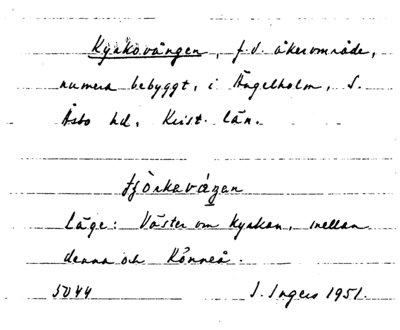 Kyrkovången, f.d. åkerområde,
numera bebyggt, i Ängelholm, S.
Åsbo hd, Krist. län.
tjörkevágen
Läge: Väster om kyrkan, mellan
denna och Rönneå.
5044 I. Ingers 1951.